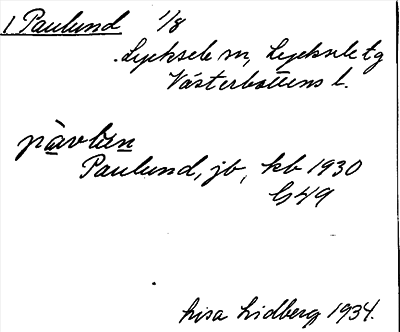 1 Paulund 1/8
Lycksele sn, Lycksele tg
Västerbottens l.
pàvlùn
Paulund, jb, kb 1930
G49
Lisa Lidberg 1934.